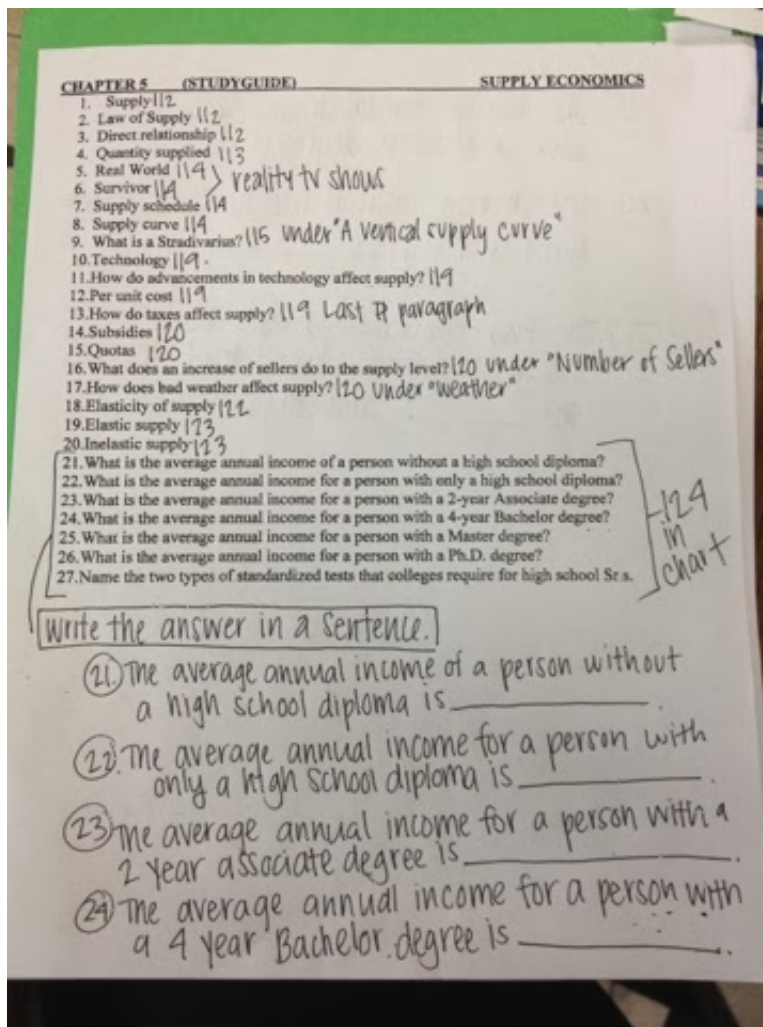 CHAPTER 5 (STUDYGUIDE) SUPPLY ECONOMICS
1. Supply 112
2. Law of Supply 112
3. Direct relationship 112
4. Quantity supplied 113
5. Real World 114
6. Survivor 114
reality tv shows
7. Supply schedule 114
8. Supply curve 114
9. What is a Stradivarius? 115 under "A vertical supply curve"
10.Technology 119.
11.How do advancements in technology affect supply? 119
12.Per unit cost 119
13.How do taxes affect supply? 119 Last paragraph
14.Subsidies 120
15.Quotas 120
16.What does an increase of sellers do to the supply level? 120 under "Number of Sellers"
17.How does bad weather affect supply? 120 under "weather"
18.Elasticity of supply 122
19.Elastic supply 123
20.Inelastic supply 123
21.What is the average annual income of a person without a high school diploma?
22.What is the average annual income for a person with only a high school diploma?
23.What is the average annual income for a person with a 2-year Associate degree?
24.What is the average annual income for a person with a 4-year Bachelor degree?
25.What is the average annual income for a person with a Master degree?
26.What is the average annual income for a person with a Ph.D. degree?
27.Name the two types of standardized tests that colleges require for high school Sr.s.
124
in
chart
Write the answer in a sentence.
21. The average annual income of a person without
a high school diploma is ____________.
22. The average annual income for a person with
only a high school diploma is ____________.
23 The average annual income for a person with a
2 year associate degree is ____________.
24 The average annual income for a person with
a 4 year Bachelor degree is ____________.